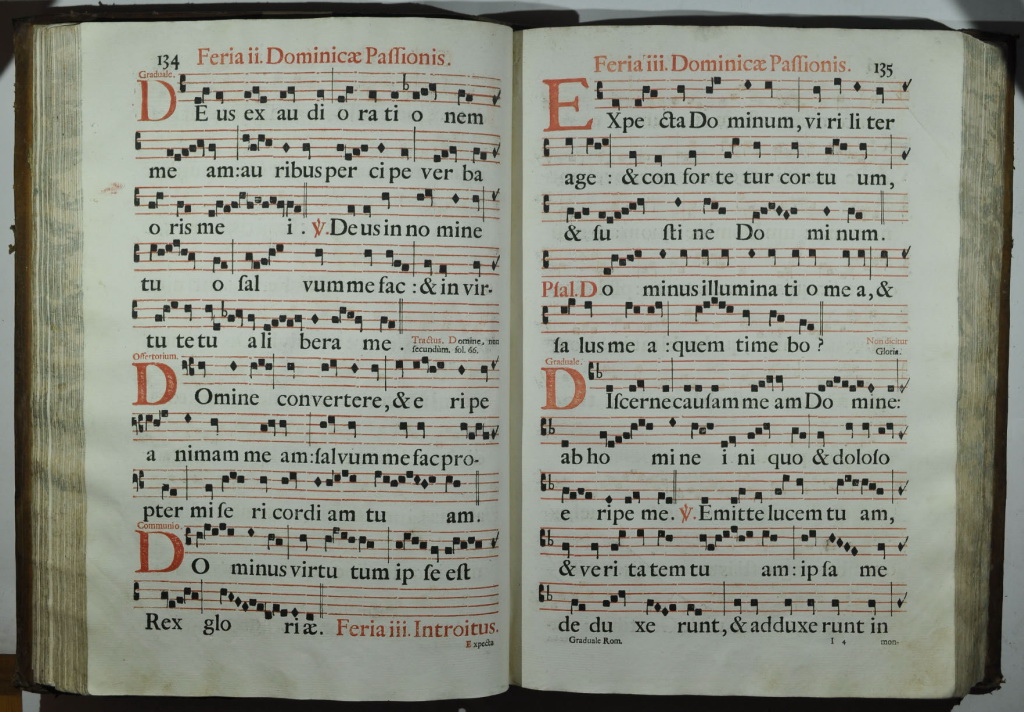 134 Feria ii. Dominicæ Paſſionis.
Graduale.
DE us ex au di o ra ti o nem
me am: au ribus per ci pe ver ba
o ris me i. ℣. De us in no mine
tu o ſal vum me fac: & in vir-
tu te tu a li bera me. Tractus. Domine, non
ſecundùm. fol. 66.
Offertorium.
DOmine convertere, & e ri pe
a nimam me am: ſalvum me fac pro-
pter mi ſe ri cordi am tu am.
Communio.
DO minus virtu tum ip ſe eſt
Rex glo ri æ. Feria iii. Introitus.
Expecta
Feria iii. Dominicæ Paſſionis. 135
EXpe cta Do minum, vi ri li ter
age: & con for te tur cor tu um,
& ſu ſti ne Do mi num.
Pſal. Do minus illumina ti o me a, &
ſa lus me a: quem time bo? Non dicitur
Gloria.
Graduale.
DIſcerne cauſam me am Do mine:
ab ho mi ne i ni quo & doloſo
e ripe me. ℣. Emitte lucem tu am,
& veri ta tem tu am: ip ſa me
de du xe runt, & adduxe runt in
Graduale Rom. I 4 mon-